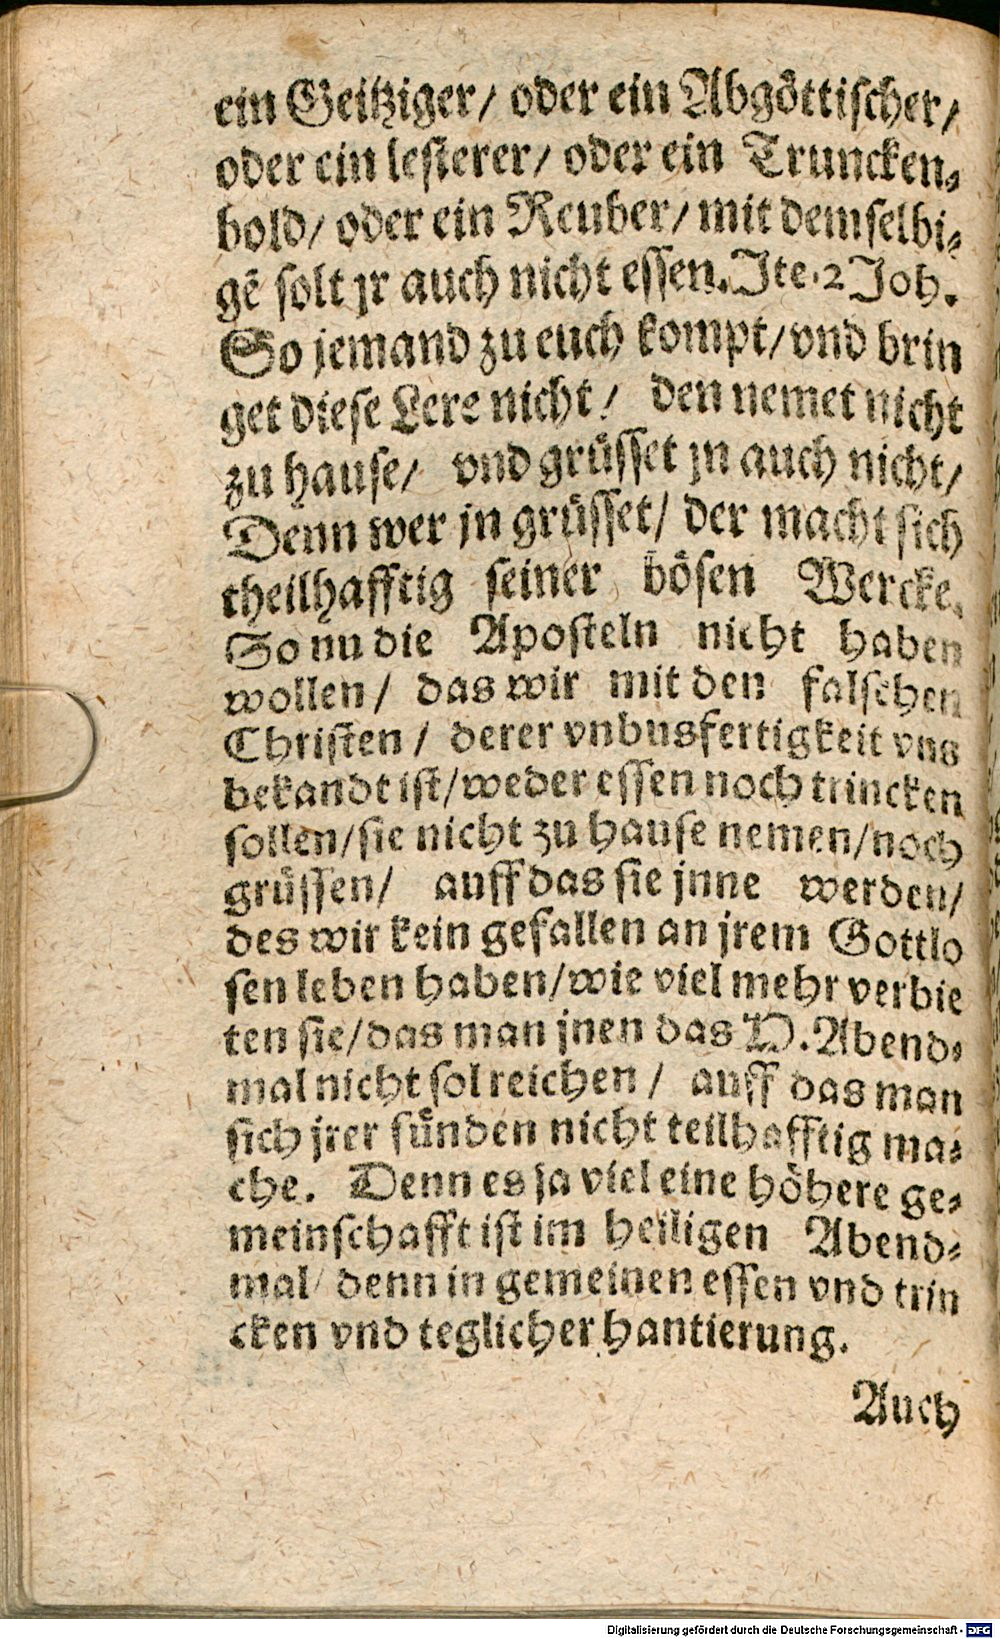 ein Geitziger/ oder ein Abgöttischer/
oder ein lesterer/ oder ein Truncken⸗
bold/ oder ein Reuber/ mit demselbi⸗
gē solt jr auch nicht essen. Ite. 2 Joh.
So jemand zu euch kompt/ vnd brin
get diese Lere nicht/ den nemet nicht
zu hause/ vnd grüsset jn auch nicht/
Denn wer jn grüsset/ der macht sich
theilhafftig seiner bösen Wercke.
So nu die Aposteln nicht haben
wollen/ das wir mit den falschen
Christen/ derer vnbusfertigkeit vns
bekandt ist/ weder essen noch trincken
sollen/ sie nicht zu hause nemen/ noch
grüssen/ auff das sie jnne werden/
des wir kein gefallen an jrem Gottlo
sen leben haben/ wie viel mehr verbie
ten sie/ das man jnen das H. Abend⸗
mal nicht sol reichen/ auff das man
sich jrer sünden nicht teilhafftig ma⸗
che. Denn es ja viel eine höhere ge⸗
meinschafft ist im heiligen Abend⸗
mal/ denn in gemeinen essen vnd trin
cken vnd teglicher hantierung.
Auch
Digitalisierung gefördert durch die Deutsche Forschungsgemeinschaft - DFG